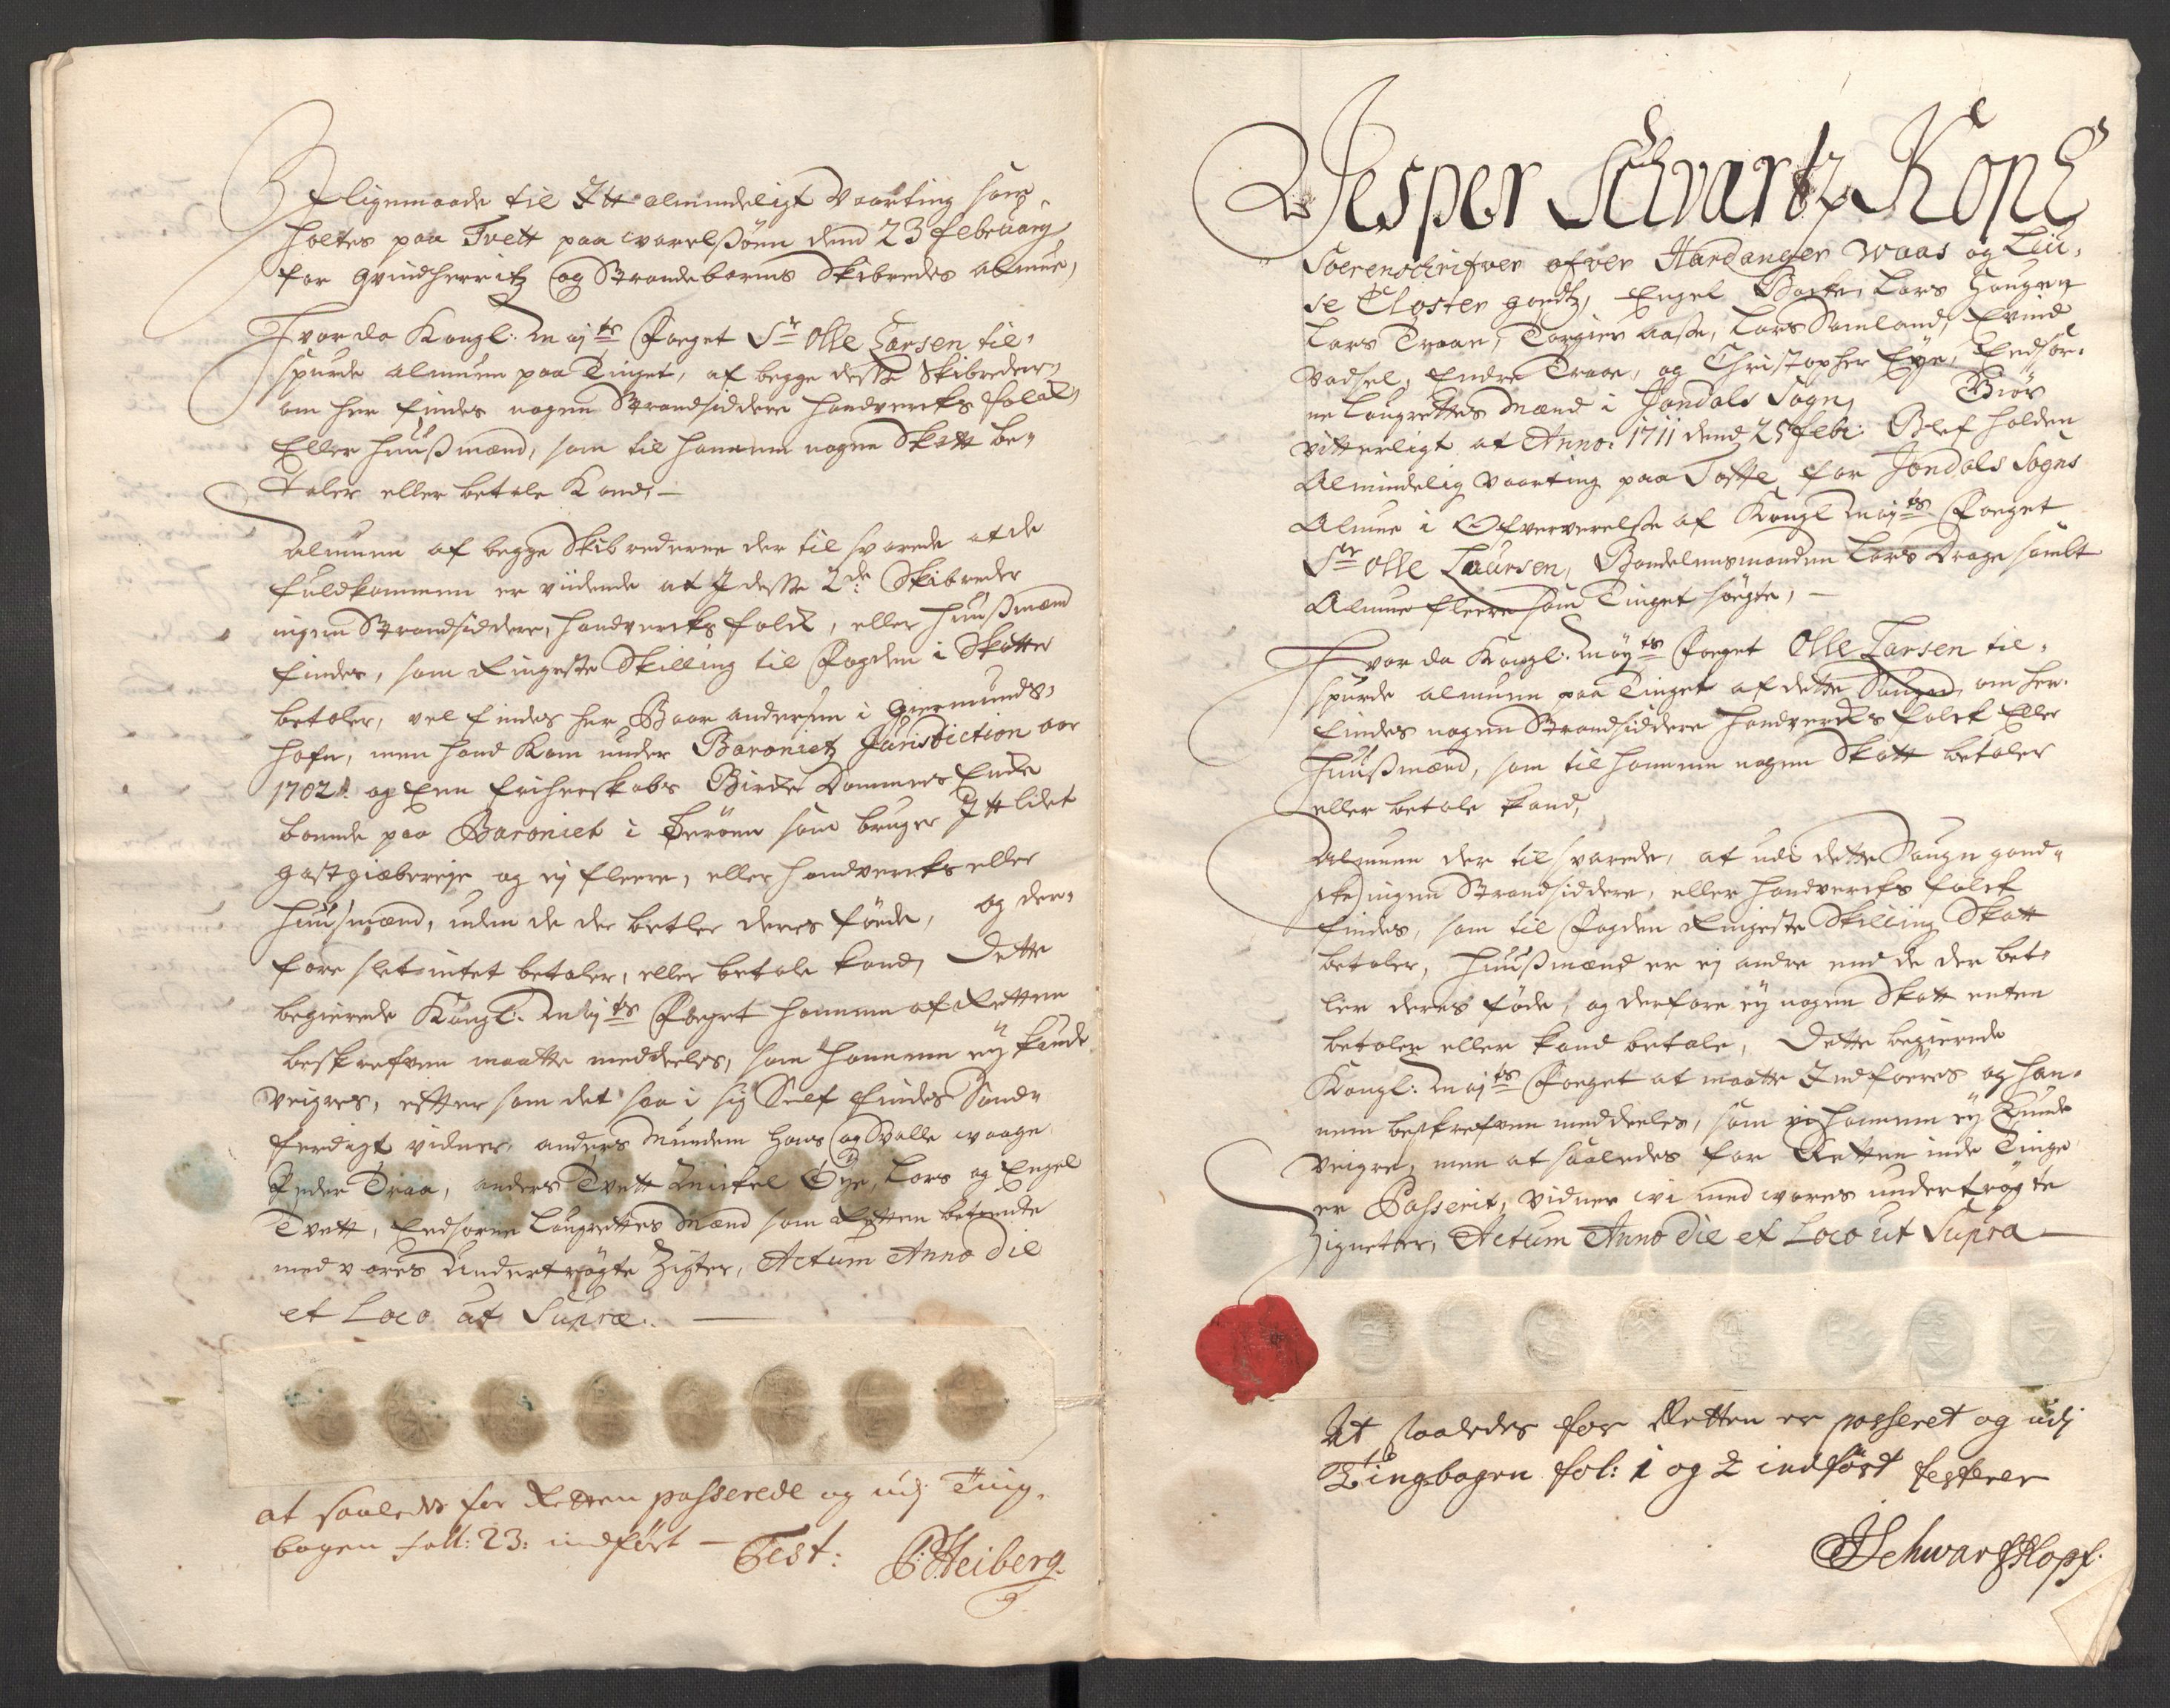 I ligemaade til Itt almindeligt Vaarting som
holtes paa Tvett paa warelsöen dend 23 februarij
for Qvindherritz og Strandebarms Skibredes almue,
hvor da Kongl: Maijts foeget Sr Olle Larsen til-
spurde almuen paa Tinget, af begge desse Skibreder,
om her findes nogen Strandsiddere handvercks folck,
Eller huusmænd, som til hannem nogen Skatt be-
taler eller betale Kand, —
Almuen af begge Skibrederne der til svarede at de
fuldkommen er viidende at I desse 2de Skibreder
ingen Strandsiddere, handvercks folck, eller huusmænd
findes, som Ringeste Skilling til fogden i Skatter
betaler, vel findes her Baar andersen i Giermunds-
hafn, men hand Kom under Baroniets Jurisdiction aar
1702. og Een friherskabs Birke Dommers Enke
boende paa Baroniet i Heröen som bruger Itt lidet
gastgiæberie og ej fleere, eller handvercks eller
huusmænd, uden de der betler deres föede, og der-
fore slet intet betaler, eller betale kand, Dette
begierede Kongl: Maijts foeget hannem af Retten
beskrefven maatte meddeeles, som hannem eij kunde
veigres, efter som det saa i sig Self findes Sand-
ferdigt vidner, anders Mundem Hans og Valle waage
Peder Traa, anders Tvett Michel Öye, Lars og Engel
Tvett, Eedsorne Laugrettes Mænd som Retten betiente
med vores Undertrögte Zigter, Actum Anno die
et Loco ut Supra. —
at saaledes for Retten passerede og udj Ting-
bogen foll: 23: indfört — Test: P Heiberg.
Jesper Schvartz Kopf
Soerenschrifver ofver Hardanger Waas og Lÿ-
se Closter godtz, Engel Bache, Lars Haugen
Lars Traae, Torgier aase, Lars Samland, Evind
Vadsel, Endre Traae, og Christopher Eye, Eedsor-
ne Laugrettes Mænd i Jondals Sogn, Giör
vitterligt at Anno: 1711 dend 25 febr: Blef holden
Almindelig Vaarting paa Toffte for Jondals Sogns
Almue i Ofververelse af Kongl Maijts foeget
Sr Olle Laursen, Bondelensmanden Lars Drage sambt
Almue fleere som Tinget söegte, —
Hvor da Kongl: Maijts foeget Olle Larsen til-
spurde almuen paa Tinget af dette Saugn, om her
findes nogen Strandsiddere handvercks folck Eller
Huusmænd, som til hannem nogen Skatt betaler
eller betale kand,
Almuen der til svarede, at udi dette Saugn gand-
ske ingen Strandsiddere, eller handvercks folck
findes, som til fogden Ringeste Skilling Skatt
betaler, Huusmænd er ej andre end de der bet-
ler deres föde, og derfore ej nogen Skatt enten
betaler eller kand betale, Dette begierede
Kongl: Maijts foeget at maatte Indföeres og han-
nem beskrefven meddeeles, som vi hannem ej Kunde
veigre, men at saaledes for Retten inde Tinge
er Passerit, vidner wi med wores undertrögte
Zigneter, Actum Anno die et Loco ut Supra —
At saaledes for Retten er passeret og udj
Tingbogen fol: 1 og 2 indfört testerer
JSchwartzKopf.